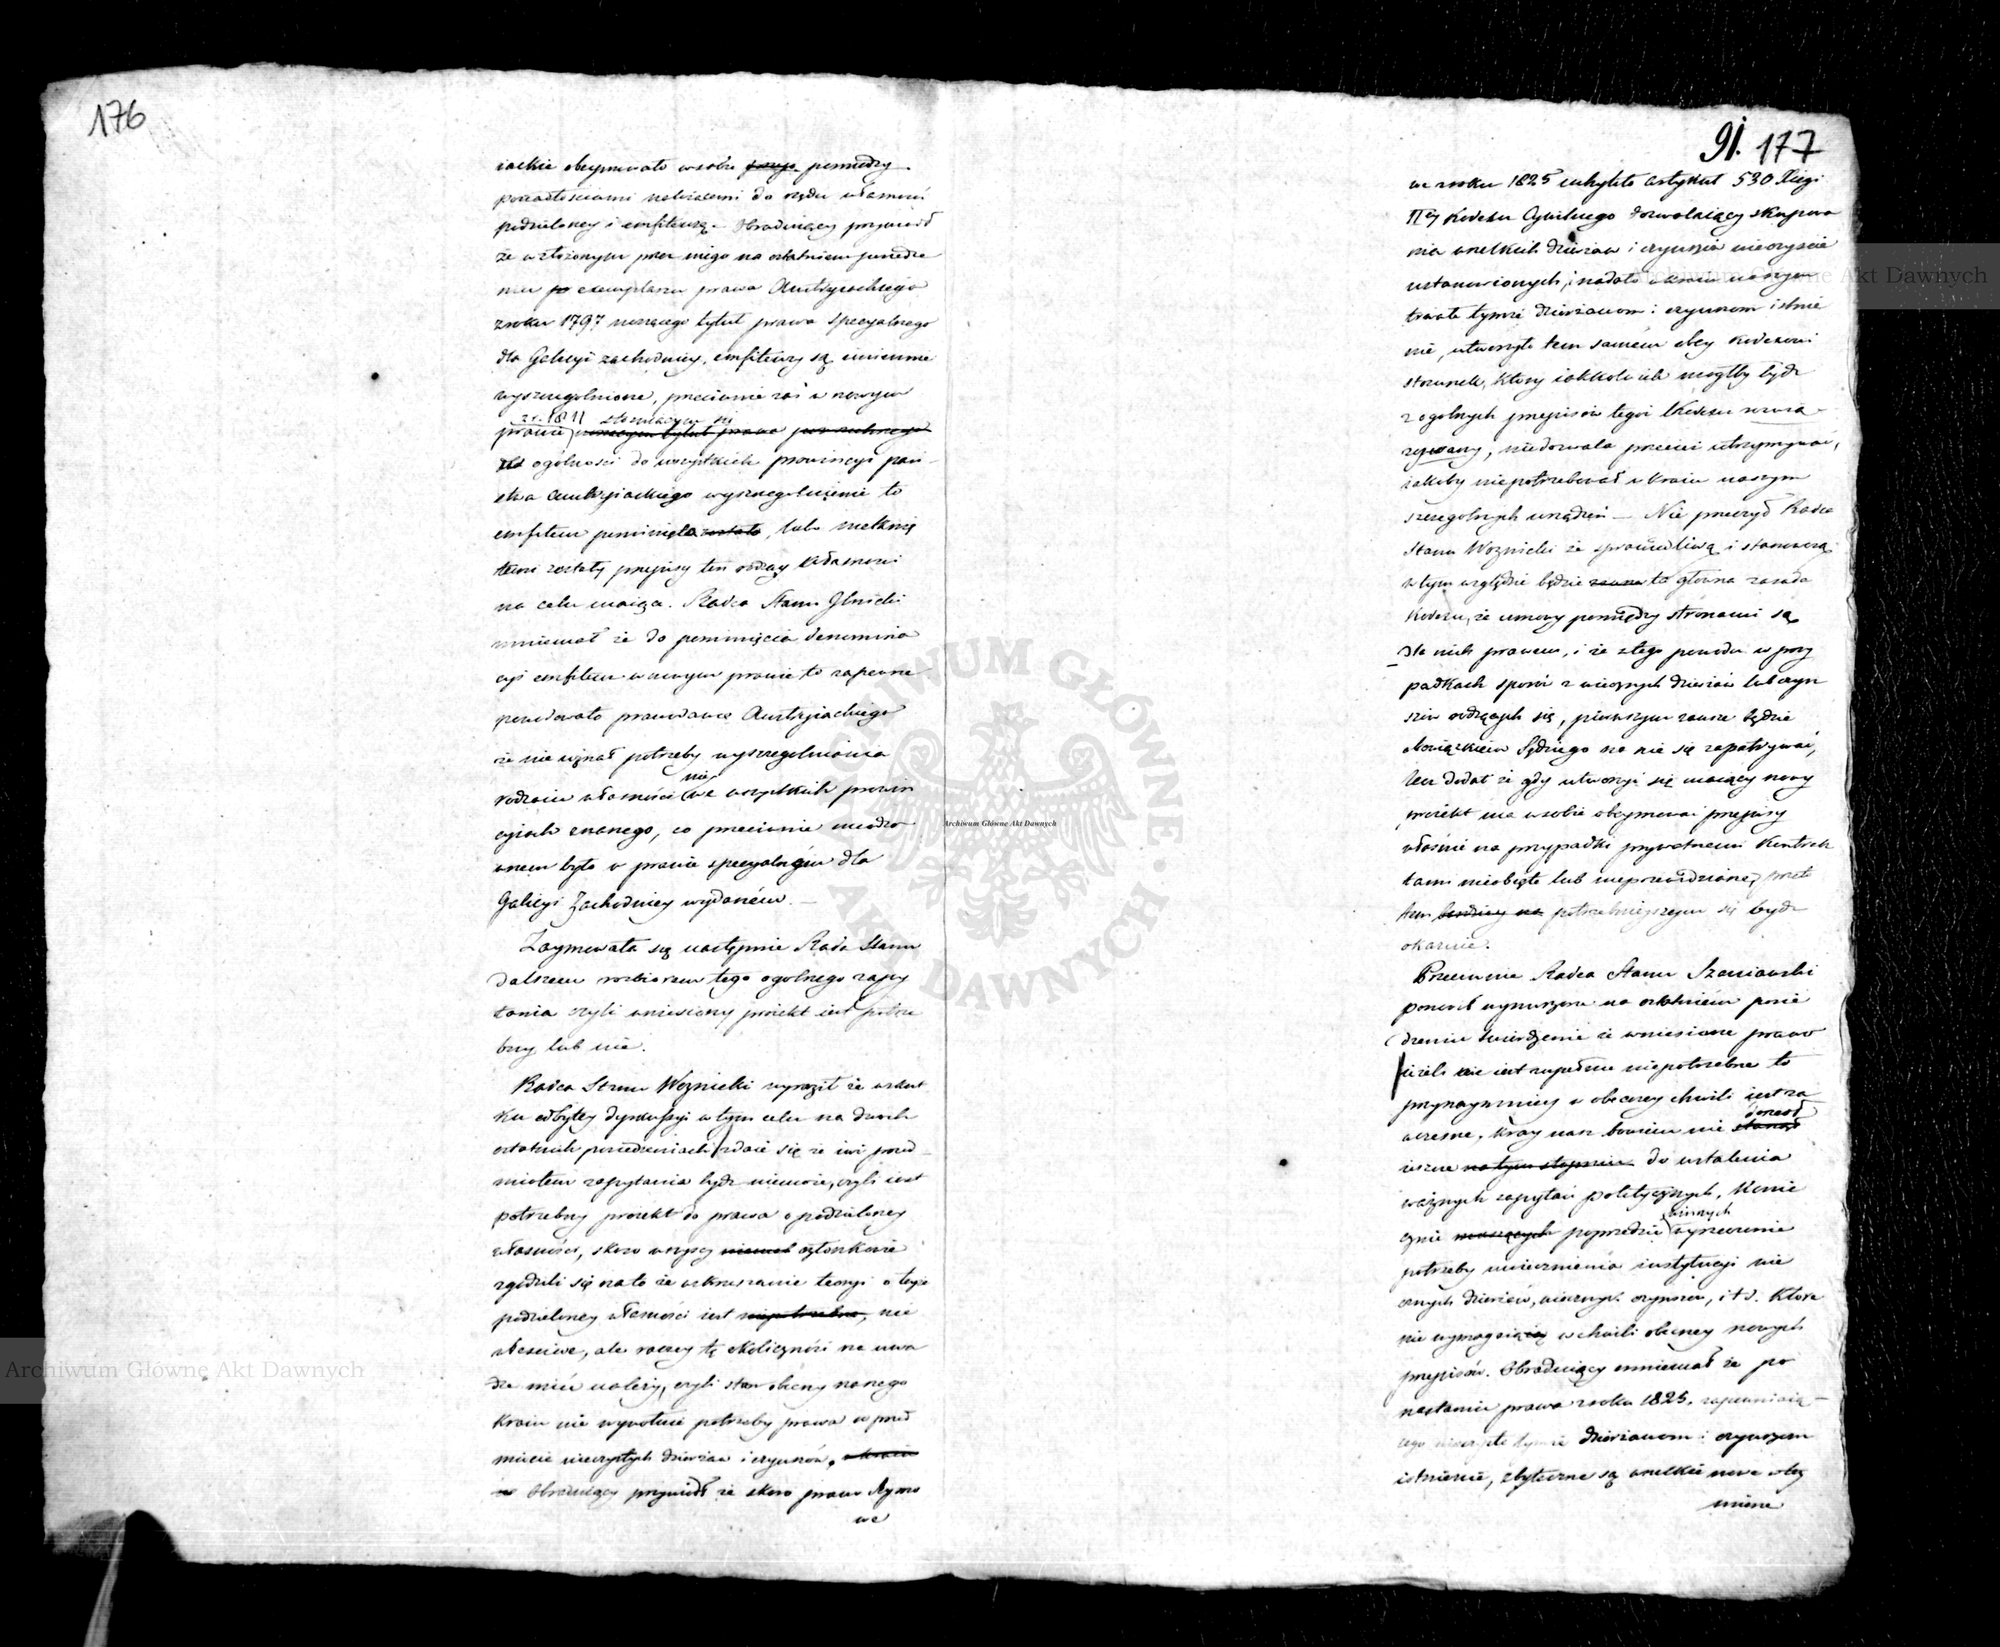 176
iackie obeymowało w sobie pomiędzy
posiadłościami należącemi do rzędu własności
podzieloney i emfiteuzą. Obradujący przywiódł
że w złożonym przez niego na ostatniem posiedze
niu exemplarzu prawa Austryackiego
z roku 1797 noszącego tytuł prawa specyalnego
dla Galicyi zachodniey, emfiteuzy są imiennie
wyszczególnione, przeciwnie zaś w nowym
z r. 1811 stosuiącym się
prawie noszącym tytuł prawa powszechnego
ogólności do wszystkich prowincyi pań
stwa Austryiackiego wyszczególnienie to
emfiteuz pominięto zostało, lubo
zostały przepisy ten rodzay własności
na celu maiące. Radca Stanu Gliński
mniemał że do pominięcia denomina
cyi emfiteuz w nowym prawie to zapewne
powodowało prawodawcę Austryiackiego
że nie uznał potrzeby wyszczególniania
nie
rodzaiu własności we wszystkich prowin
cyiach znanego, co przeciwnie
było w prawie specyalnem dla
Galicyi Zachodniey wydanem. —
Zaymowała się następnie Rada Stanu
dalszem rozbiorem tego ogólnego zapy
tania czyli wniesiony proiekt iest potrze
bny lub nie.
Radca Stanu Woźnicki wyraził że w skut
ku odbytey dyskussyi w tym celu na dwóch
ostatnich posiedzeniach zdaie się że iuż przed
miotem zapytania bydź niemoże, czyli iest
potrzebny proiekt do prawa o podzieloney
własności, skoro wszyscy niemal członkowie
zgodzili się na to że wskrzeszanie teoryi o teyże
podzieloney własności iest niepotrzebne, nie
właściwe, ale raczey tę okoliczność na uwa
dze mieć należy, czyli stan obecny naszego
kraiu nie wywołuie potrzeby prawa w przed
miocie wieczystych dzierżaw i czynszów.
Obraduiący przywiódł że skoro prawo Seymo
we
91. 177
w roku 1825 uchyliło artykuł 530 Xięgi
IIey Kodexu Cywilnego dozwalaiący skupowa
nia wszelkich dzierżaw i czynszów wieczyście
ustanowionych, i nadało w kraiu naszym
trwałe tymże dzierżawom i czynszom istnie
nie, utworzyło tem samem obcy Kodexowi
stosunek, który iakkolwiek mógłby bydź
z ogólnych przepisów tegoż Kodexu
, niedozwala przecież utrzymywać,
iakoby niepotrzebował w kraiu naszym
szczególnych urządzeń — Nie przeczył Radca
Stanu Woźnicki że sprawiedliwą i stanowczą
w tym względzie będzie to główna zasada
Kodexu, że umowy pomiędzy stronami są
dla nich prawem, i że z tego powodu w przy
padkach sporów z wiecznych dzierżaw lub czyn
szów rodzących się, pierwszym zawsze będzie
obowiązkiem Sędziego na nie się zapatrywać,
lecz dodał że gdy utworzyć się maiący nowy
proiekt ma w sobie obeymować przepisy
właśnie na przypadki prywatnemi kontrak
tami nieobięte lub nieprzewidziane, przeto
tem bardziey potrzebnieyszym się bydź
okazuie.
Przeciwnie Radca Stanu Szaniawski
ponowił wynurzone na ostatniem posie
dzeniu twierdzenie że wniesione prawo
ieżeli nie iest zupełnie niepotrzebne to
przynaymniey w obecney chwili iest za
dorosł
wczesne, kray nasz bowiem nie stanął
ieszcze na tym stopniu do ustalenia
ważnych zapytań politycznych, konie
winnych
cznie maiących poprzedzić wyrzeczenie
potrzeby uwiecznienia instytucyi wie
cznych dzierżaw, wiecznych czynszów, i t d. które
nie wymagaią w chwili obecney nowych
przepisów. Obraduiący mniemał że po
nastaniu prawa z roku 1825, zapewniaią —
cego wieczyste tymże dzierżawom i czynszom
istnienie, zbyteczne są wszelkie nowe
Archiwum Główne Akt Dawnych
Archiwum Główne Akt Dawnych
Archiwum Główne Akt Dawnych
ARCHIWUM GŁÓWNE AKT DAWNYCH